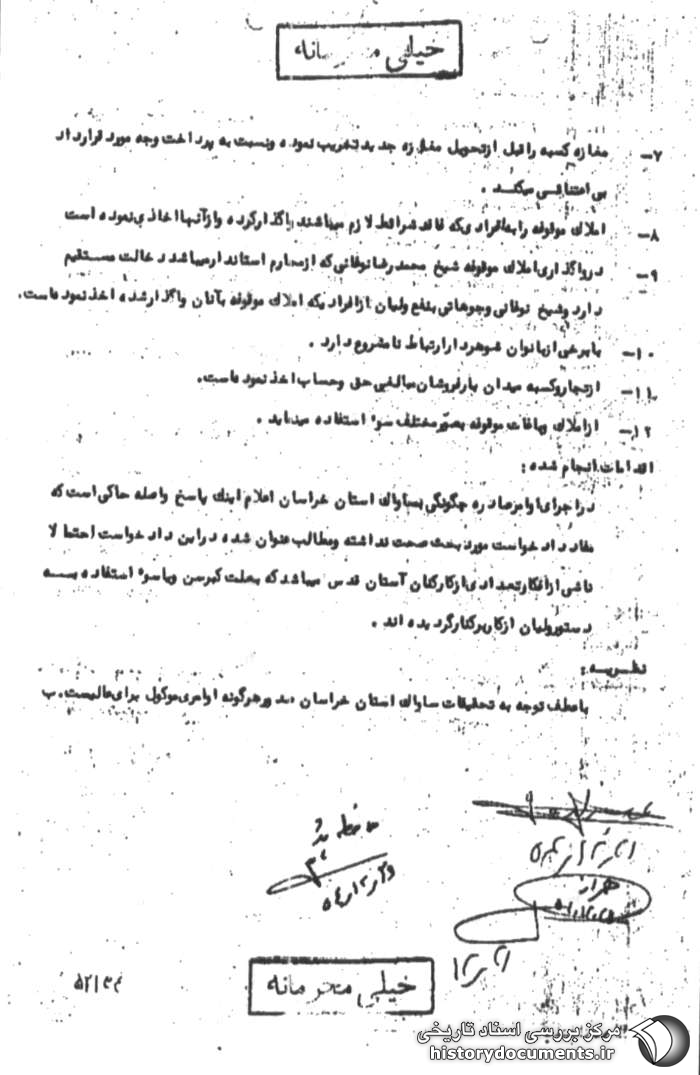 خیلی محرمانه
۷- مغازه کسبه را قبل از تحویل مغازه جدید تخریب نموده و نسبت به پرداخت وجه مورد قرارداد
بی اعتنائی میکند .
۸- املاک موقوفه را بافرادیکه فاقد شرائط لازم میباشند واگذار کرده و از آنها اخاذی نموده است
۹- در واگذاری املاک موقوفه شیخ محمدرضا نوغانی که از محارم استاندار میباشد دخالت مستقیم
دارد و شیخ نوغانی وجوهاتی بنفع ولیان از افرادیکه املاک موقوفه بآنان واگذار شده اخذ نموده است.
۱۰- با برخی از بانوان شوهردار ارتباط نامشروع دارد .
۱۱- از تجار و کسبه میدان بارفروشان مبالغی حق و حساب اخذ نموده است.
۱۲- از املاک و باغات موقوفه بصور مختلف سوء استفاده مینماید .
اقدامات انجام شده :
در اجرای اوامر صادره چگونگی بساواک استان خراسان اعلام اینک پاسخ واصله حاکی است که
مفاد دادخواست مورد بحث صحت نداشته و مطالب عنوان شده در این دادخواست احتمالا
ناشی از افکار تعدادی از کارکنان آستان قدس میباشد که بعلت کبر سن و یا سوء استفاده بـــه
دستور ولیان از کار برکنار گردیده اند .
نظریــه :
با عطف توجه به تحقیقات ساواک استان خراسان صدور هرگونه اوامری موکول برای عالیست. ب
ملاحظه شد
خیلی محرمانه
مرکز بررسی اسناد تاریخی
historydocuments.ir